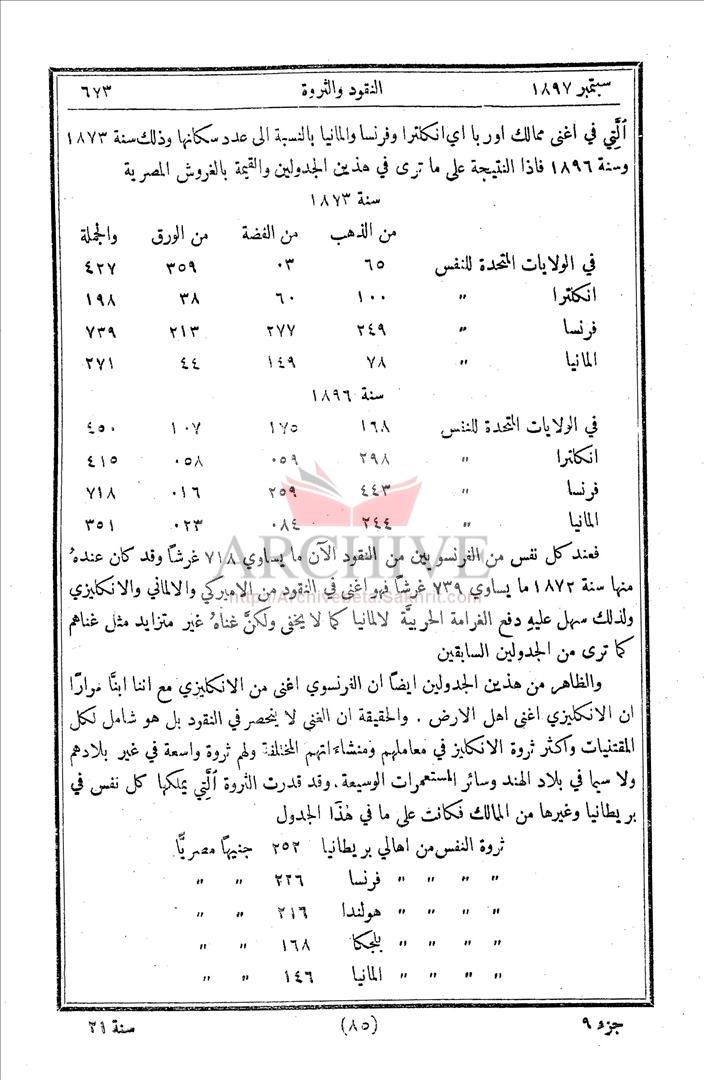 سبتمبر ١٨٩٧ النقود والثروة ٦٧٣
ٱلَّتِي في اغنى ممالك اوربا اي انكلترا وفرنسا والمانيا بالنسبة الى عدد سكانها وذلك سنة ١٨٧٣
وسنة ١٨٩٦ فاذا النتيجة على ما ترى في هذين الجدولين والقيمة بالغروش المصرية
سنة ١٨٧٣
من الذهب من الفضة من الورق والجملة
في الولايات المتحدة للنفس ٦٥ ٠٣ ٣٥٩ ٤٢٧
انكلترا " ١٠٠ ٦٠ ٣٨ ١٩٨
فرنسا " ٢٤٩ ٢٧٧ ٢١٣ ٧٣٩
المانيا " ٧٨ ١٤٩ ٤٤ ٢٧١
سنة ١٨٩٦
في الولايات المتحدة للنفس ١٦٨ ١٧٥ ١٠٧ ٤٥٠
انكلترا " ٢٩٨ ٠٥٩ ٠٥٨ ٤١٥
فرنسا " ٤٤٣ ٢٥٩ ٠١٦ ٧١٨
المانيا " ٢٤٤ ٠٨٤ ٠٢٣ ٣٥١
ARCHIVE
فعند كل نفس من الفرنسويين من النقود الآن ما يساوي ٧١٨ غرشًا وقد كان عندهُ
منها سنة ١٨٧٢ ما يساوي ٧٣٩ غرشًا فهو اغنى في النقود من الاميركي والالماني والانكليزي
http://Archivebeta.Sakhrit.com
ولذلك سهل عليهِ دفع الغرامة الحربيَّة لالمانيا كما لا يخفى ولكنَّ غناهُ غير متزايد مثل غناهم
كما ترى من الجدولين السابقين
والظاهر من هذين الجدولين ايضًا ان الفرنسوي اغنى من الانكليزي مع اننا ابنَّا مرارًا
ان الانكليزي اغنى اهل الارض . والحقيقة ان الغنى لا ينحصر في النقود بل هو شامل لكل
المقتنيات واكثر ثروة الانكليز في معاملهم ومنشاءاتهم المختلفة ولهم ثروة واسعة في غير بلادهم
ولا سيما في بلاد الهند وسائر المستعمرات الوسيعة. وقد قدرت الثروة ٱلَّتِي يملكها كل نفس في
بريطانيا وغيرها من الممالك فكانت على ما في هٰذا الجدول
ثروة النفس من اهالي بريطانيا ٢٥٢ جنيهًا مصريًّا
" " " " فرنسا ٢٢٦ " "
" " " " هولندا ٢١٦ " "
" " " " بلجكا ١٦٨ " "
" " " " المانيا ١٤٦ " "
جزء ٩ (٨٥) سنة ٢١